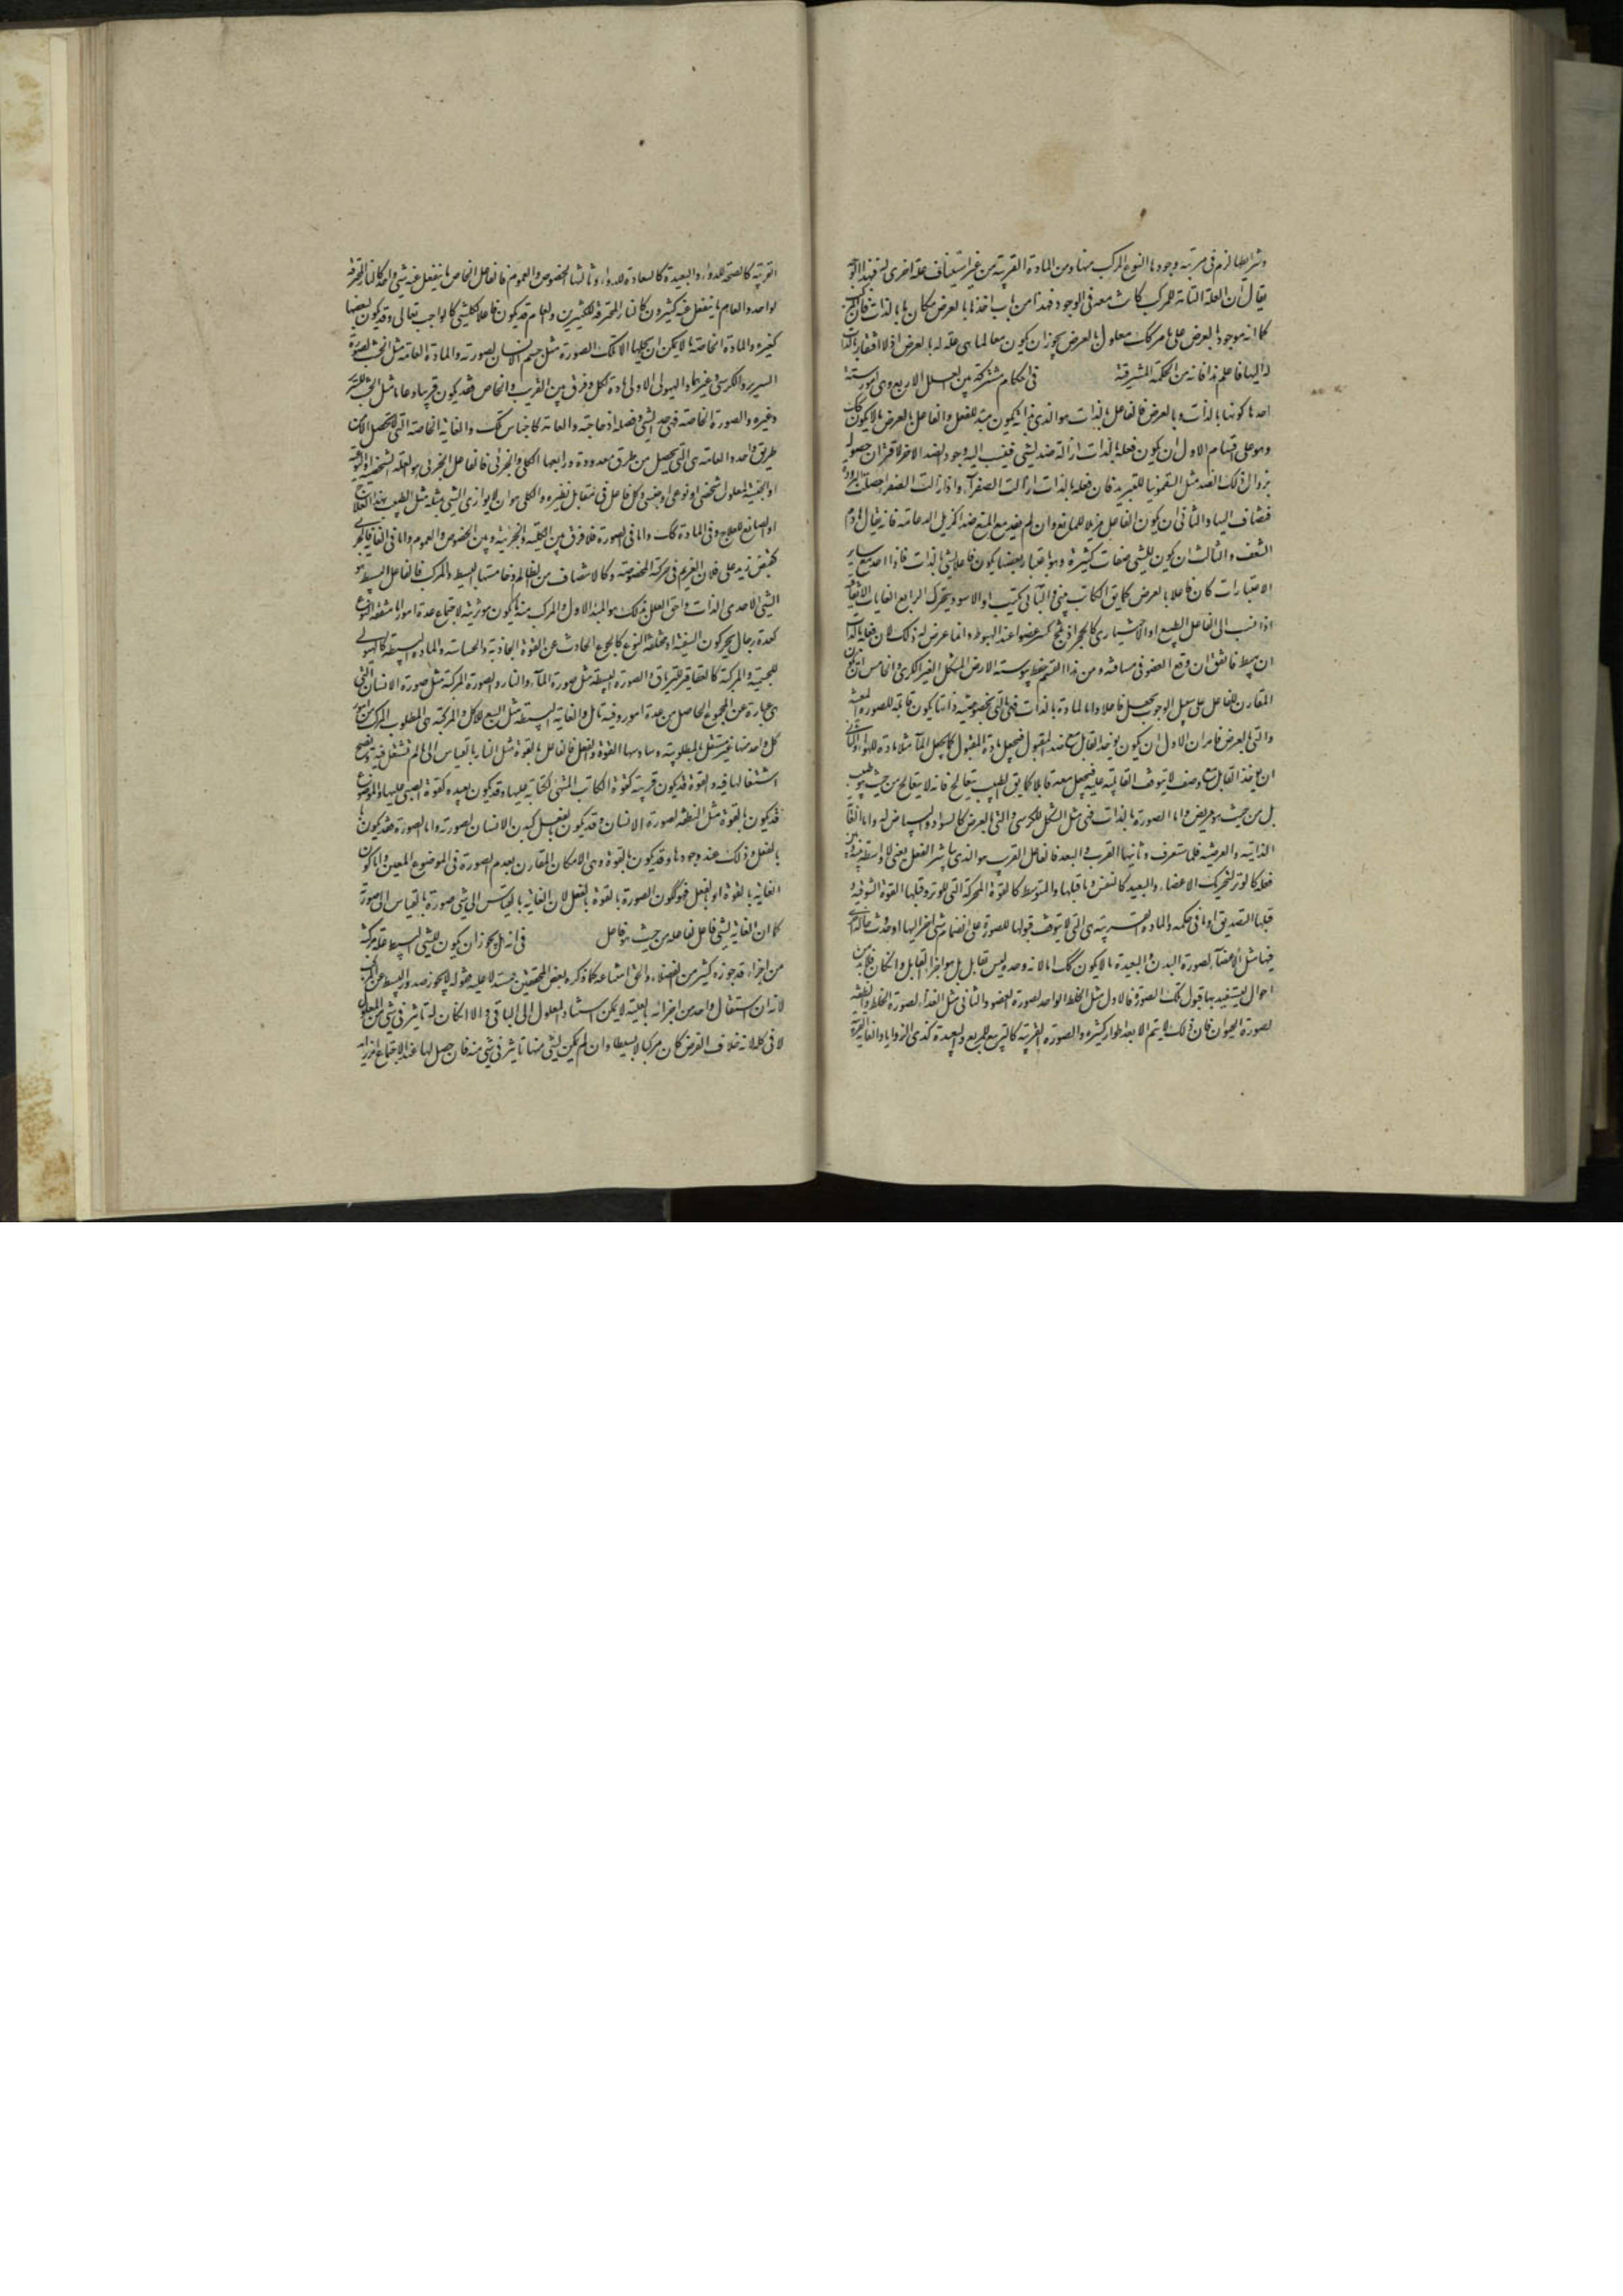 وشرايطها لزم فى مرتبة وجودها النوع المركب منها ومن المادة القريبة من غير استيناف علة اخرى له فبهذا الوجه
يقال ان العلة التامة للمركب كانت معه فى الوجود فهذا من باب اخذ ما بالعرض مكان ما بالذات فان المركب
كما انه موجود بالعرض على ما مر كك معلول بالعرض يجوز ان يكون معا لما هى علة له بالعرض اذ لا افتقار بالذات
له اليها فاعلم هذا فانه من الحكمة المشرقية فى احكام مشتركة بين العلل الاربع وهى امور ستة
احدها كونها بالذات وبالعرض فالفاعل بالذات هو الذى بذاته يكون مبدءا للفعل والفاعل بالعرض ما لا يكون كك
وهو على اقسام الاول ان يكون فعله بالذات ازالة ضد لشىء فينسب اليه وجود الضد الاخر لاقتران حصوله
بزوال ذلك الضد مثل السقمونيا للتبريد فان فعله بالذات ازالة الصفرآء واذا زالت الصفرا حصلت البرودة
فتضاف اليها والثانى ان يكون الفاعل مزيلا للمانع وان لم يفد مع المنع ضدا كمزيل الدعامة فانه يقال هادم
السقف والثالث ان يكون للشىء صفات كثيرة وهو باعتبار بعضها يكون فاعلا لشىء بالذات فاذا اخذ مع ساير
الاعتبارات كان فاعلا بالعرض كما يق الكاتب يبنى والبانى يكتب او الاسود يتحرك الرابع الغايات الاتفاقية
اذا نسب الى الفاعل الطبيعى او الاختيارى كالحجر اذ شج كسر عضوا عند الهبوط وانما عرض له ذلك لان فعله بالذات
ان يهبط فاتفق ان وقع العضو فى مسافته ومن هذا القسم حفظ يبوسة الارض الشكل الغير الكرى والخامس ان يكون
المقارن للفاعل على سبيل الوجوب يجعل فاعلا واما المادة بالذات فهى التى بخصوصية ذاتها يكون قابلة للصورة المعينة
والتى بالعرض فامران الاول ان يكون يوخذ القابل مع ضد المقبول فيجعل مادة المقبول كما يجعل المآء مثلا مادة للهواء والثانى
ان يوخذ القابل مع وصف لا يتوقف القابلية عليه فيجعل معه قابلا كما يق الطبيب يتعالج فانه لا يتعالج من حيث هو طبيب
بل من حيث هو مريض واما الصورة بالذات فهى مثل الشكل للكرسى والتى بالعرض كالسواد والبياض له واما الغاية
الذاتية والعرضية فكما ستعرف وثانيها القرب والبعد فالفاعل القريب هو الذى يباشر الفعل يعنى لا واسطة بينه وبين
فعله كالوتر لتحريك الاعضاء والبعيد كالنفس وما قبلها والمتوسط كالقوة المحركة التى للوتر وقبلها القوة الشوقية و
قبلها التصديق او ما فى حكمه والمادة القريبة هى التى لا يتوقف قبولها للصورة على انضمام شىء اخر اليها او حدوث حالة اخرى
فيها مثل الاعضآء لصورة البدن والبعيدة ما لا يكون كك اما لانه وحده ليس قابل بل هو جزء القابل وان كان فلا بد من
احوال يستفيد بها قبول تلك الصورة فالاول مثل الخلط الواحد لصورة العضو والثانى مثل الغذاء لصورة الخلط والنطفة
لصورة الحيوان فان ذلك لا يتم الا بعد اطوار كثيرة والصورة القريبة كالتربيع للمربع والبعيدة كذى الزوايا والغاية القريبة
القريبة كالصحة للدواء والبعيدة كالسعادة للدواء وثالثها الخصوص والعموم فالفاعل الخاص ما ينفعل عنه شىء واحد كالنار المحرقة
لواحد والعام ما ينفعل عنه كثيرون كالنار المحرقة لكثيرين والعام قد يكون فاعلا لكل شىء كالواجب تعالى وقد يكون لبعضها
كغيره والمادة الخاصة ما لا يمكن ان يحلها الا تلك الصورة مثل جسم الانسان لصورته والمادة العامة مثل الخشب لصورة
السرير والكرسى وغيرهما والهيولى الاولى مادة لكل وفرق بين القريب والخاص فقد يكون قريبا وعاما مثل الخشب للسرير
وغيره والصورة الخاصة فهى حد الشىء وفصله او خاصته والعامة كاجناس تلك والغاية الخاصة التى لا تحصل الا من
طريق واحد والعامة هى التى يحصل من طرق معدودة ورابعها الكلى والجزئى فالفاعل الجزئى هو العلة الشخصية او النوعية
او الجنسية لمعلول شخصى او نوعى او جنسى وكل فاعل فى مقابل نظيره والكلى هو ان لا يوازى الشىء مثله مثل الطبيب لهذا العلاج
او الصانع للعلاج وفى المادة كك واما فى الصورة فلا فرق بين الكلية والجزئية وبين الخصوص والعموم واما فى الغاية فالجزئى
كقبض زيد على فلان الغريم فى حركة المخصوصة وكالانتصاف من الظالم وخامستها البسيط والمركب فالفاعل البسيط هو
الشىء الاحدى الذات واحق العلل بذلك هو المبدا الاول والمركب منه ما يكون موثريته لاجتماع عدة امور اما متفقة النوع
كعدة رجال يحركون السفينة او مختلفة النوع كالجوع الحادث عن القوة الجاذبة والحساسة والمادة البسيطة كالهيولى
للجسمية والمركبة كالعقاقير للترياق والصورة البسيطة مثل صورة المآء والنار والصورة المركبة مثل صورة الانسان التى
هى عبارة عن المجموع الحاصل من عدة امور وفيه تامل والغاية البسيطة مثل الشبع للاكل والمركبة هى المطلوب المركب من امور
كل واحد منها غير مستقل بالمطلوبية وسادسها القوة والفعل فالفاعل بالقوة مثل النار بالقياس الى ما لم تشتعل فيه ويصح
اشتعالها فيه والقوة قد يكون قريبة كقوة الكاتب المتهى للكتابة عليها وقد يكون بعيدة كقوة الصبى عليها والموضوع
قد يكون بالقوة مثل النطفة لصورة الانسان وقد يكون بالفعل كبدن الانسان لصورته واما الصورة فقد يكون
بالفعل وذلك عند وجودها وقد يكون بالقوة وهى الامكان المقارن بعدم الصورة فى الموضوع المعين واما كون
الغاية بالقوة او بالفعل فهو ككون الصورة بالقوة بالفعل لان الغاية بالقياس الى شىء صورة بالقياس الى صورة
كما ان الغاية لشىء فاعل لفاعله من حيث هو فاعل فى انه هل يجوز ان يكون للشىء البسيط علة مركبة
من اجزاء قد جوزه كثير من الفضلاء والحق امتناعه كما ذكره بعض المحققين مستدلا عليه بقوله لا يجوز صدور البسيط عن المركب
لانه ان استقل واحد من اجزائه بالعلية لا يمكن استناد المعلول الى الباقى والا ان كان له تاثير فى شىء من المعلول
لا فى كله لانه خلاف الفرض كان مركبا لا بسيطا وان لم يكن لشىء منها تاثير فى شىء منه فان حصل لها عند الاجتماع امر زايد